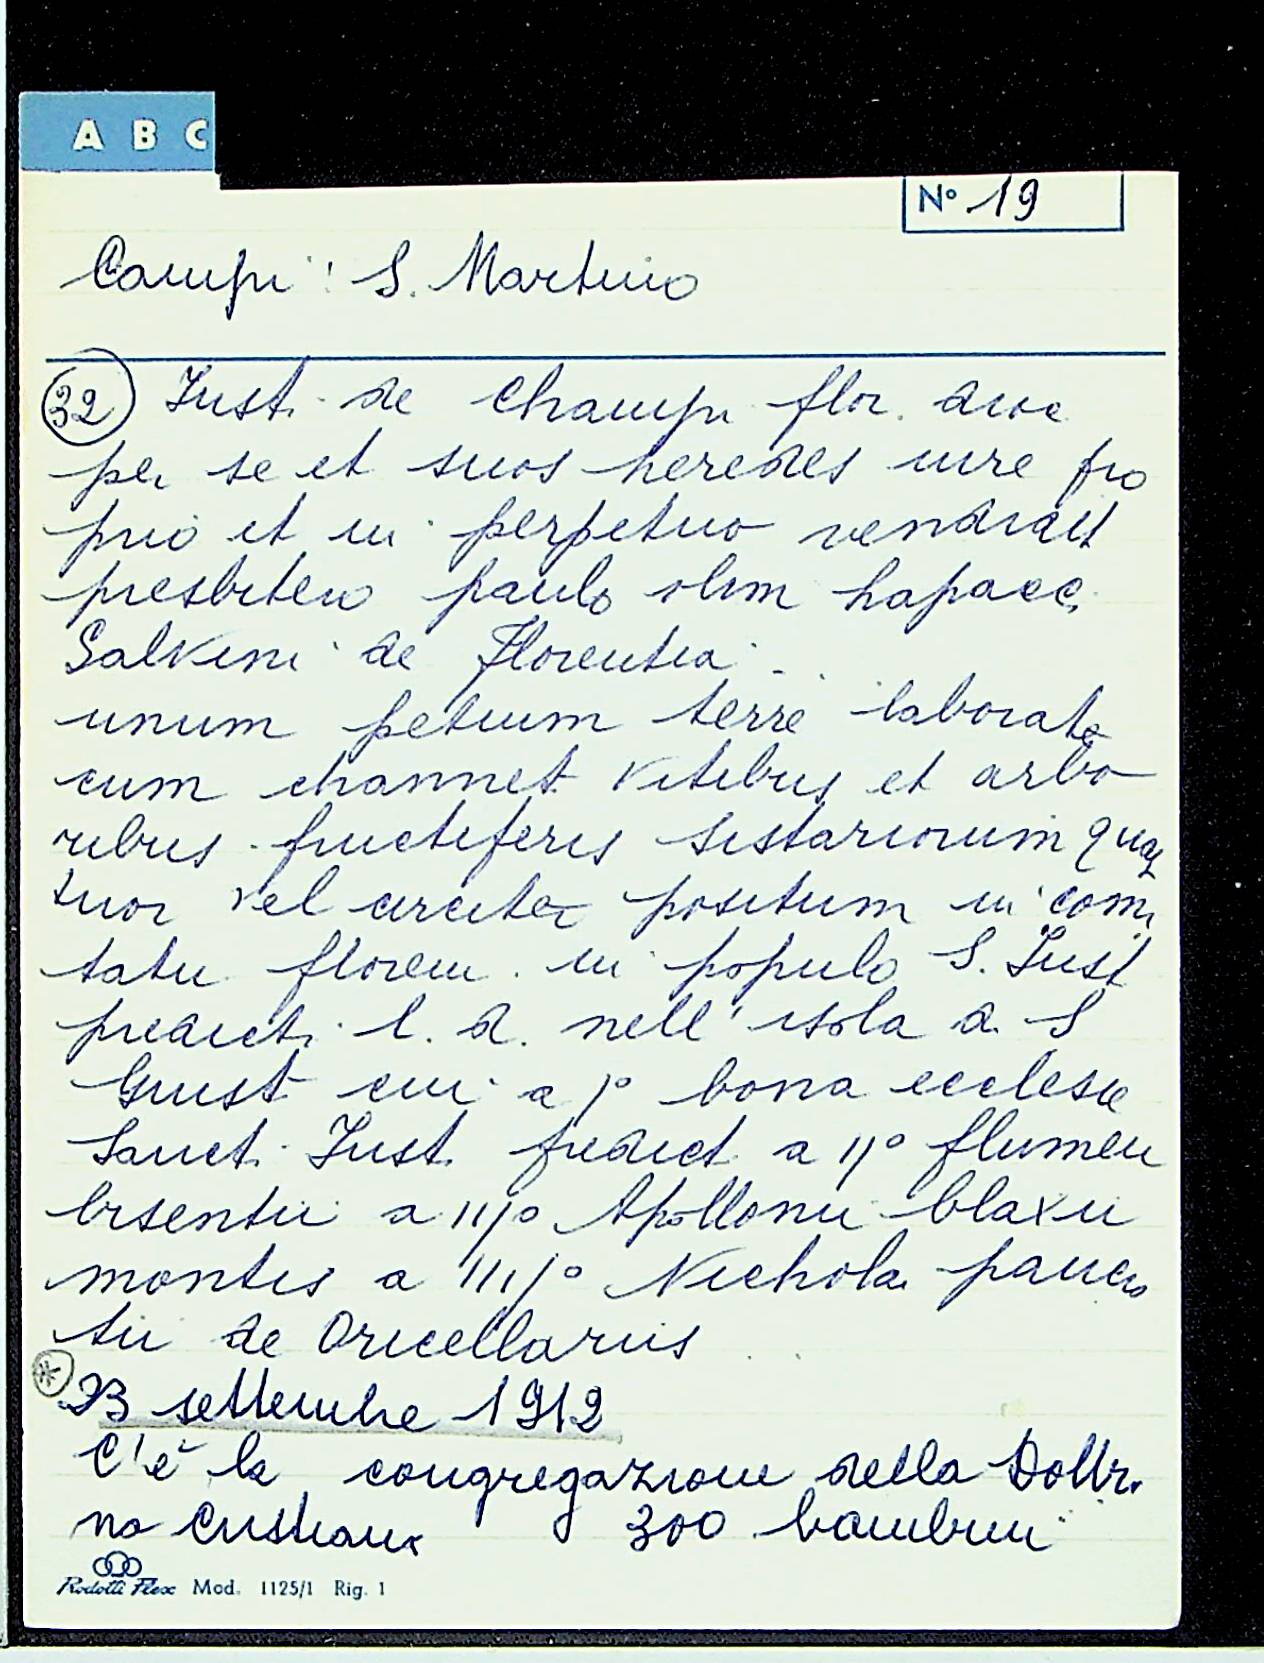 A B C
Nº 19
Campi: S. Martino
32 Iust. de Champi flor. dioc
per se et suos heredes iure pro
prio et in perpetuo vendidit
presbitero paulo olim hapacc.
Salvini de Florentia
unum petium terre laborate
cum channet vitibus et arbo
ribus fructiferis sistariorum quat
tuor vel circiter positum in comi
tatu floren. in populo S. Iust
predict. l. d. nell'isola d. S
Giust cui a jº bona ecclesie
Sanct. Iust. predict a ijº flumen
bisentii a iijº Apollonii blaxii
montis a iiijº Nichola
de Oricellariis
23 settembre 1912
C'è la congregazione della Dottr.
na Cristiana 300 bambini
Rodotti Flex Mod. 1125/1 Rig. 1